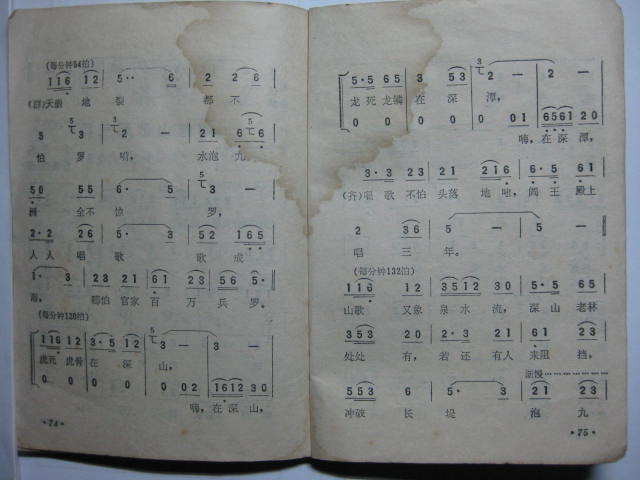 (每分钟54拍)
116 12 5· 6 2 26
(群)天崩 地 裂 都 不
5 3 2 — 21 66
怕 罗 唱, 水泡 九
50 55 6· 5 2 —
洲 全不 惊 罗,
2·2 26 5· 3 52 165
人人 唱 歌 歌 成
1· 3 23 21 61 23 56 5·
海, 哪怕 官家 百 万 兵 罗。
(每分钟120拍)
116 12 3·5 12 3 — 3 —
虎死 虎骨 在 深 山,
0 0 0 0 0 02 1612 30
嗨, 在深 山,
·74·
5·5 65 3 53 2 — 2 —
龙死 龙鳞 在 深 潭,
0 0 0 0 0 01 6561 20
嗨, 在深 潭,
3·3 23 21 216 6·5 61
(齐)唱歌 不怕 头落 地吔, 阎王 殿上
2 36 5 — 5 —
唱 三 年。
(每分钟132拍)
116 12 3512 30 5·5 65
山歌 又象 泉水 流, 深山 老林
353 21 2·3 21 61 23
处处 有, 若还 有人 来阻 挡,
渐慢
553 21 5· 3 2 3
冲破 长 堤 泡 九
·75·